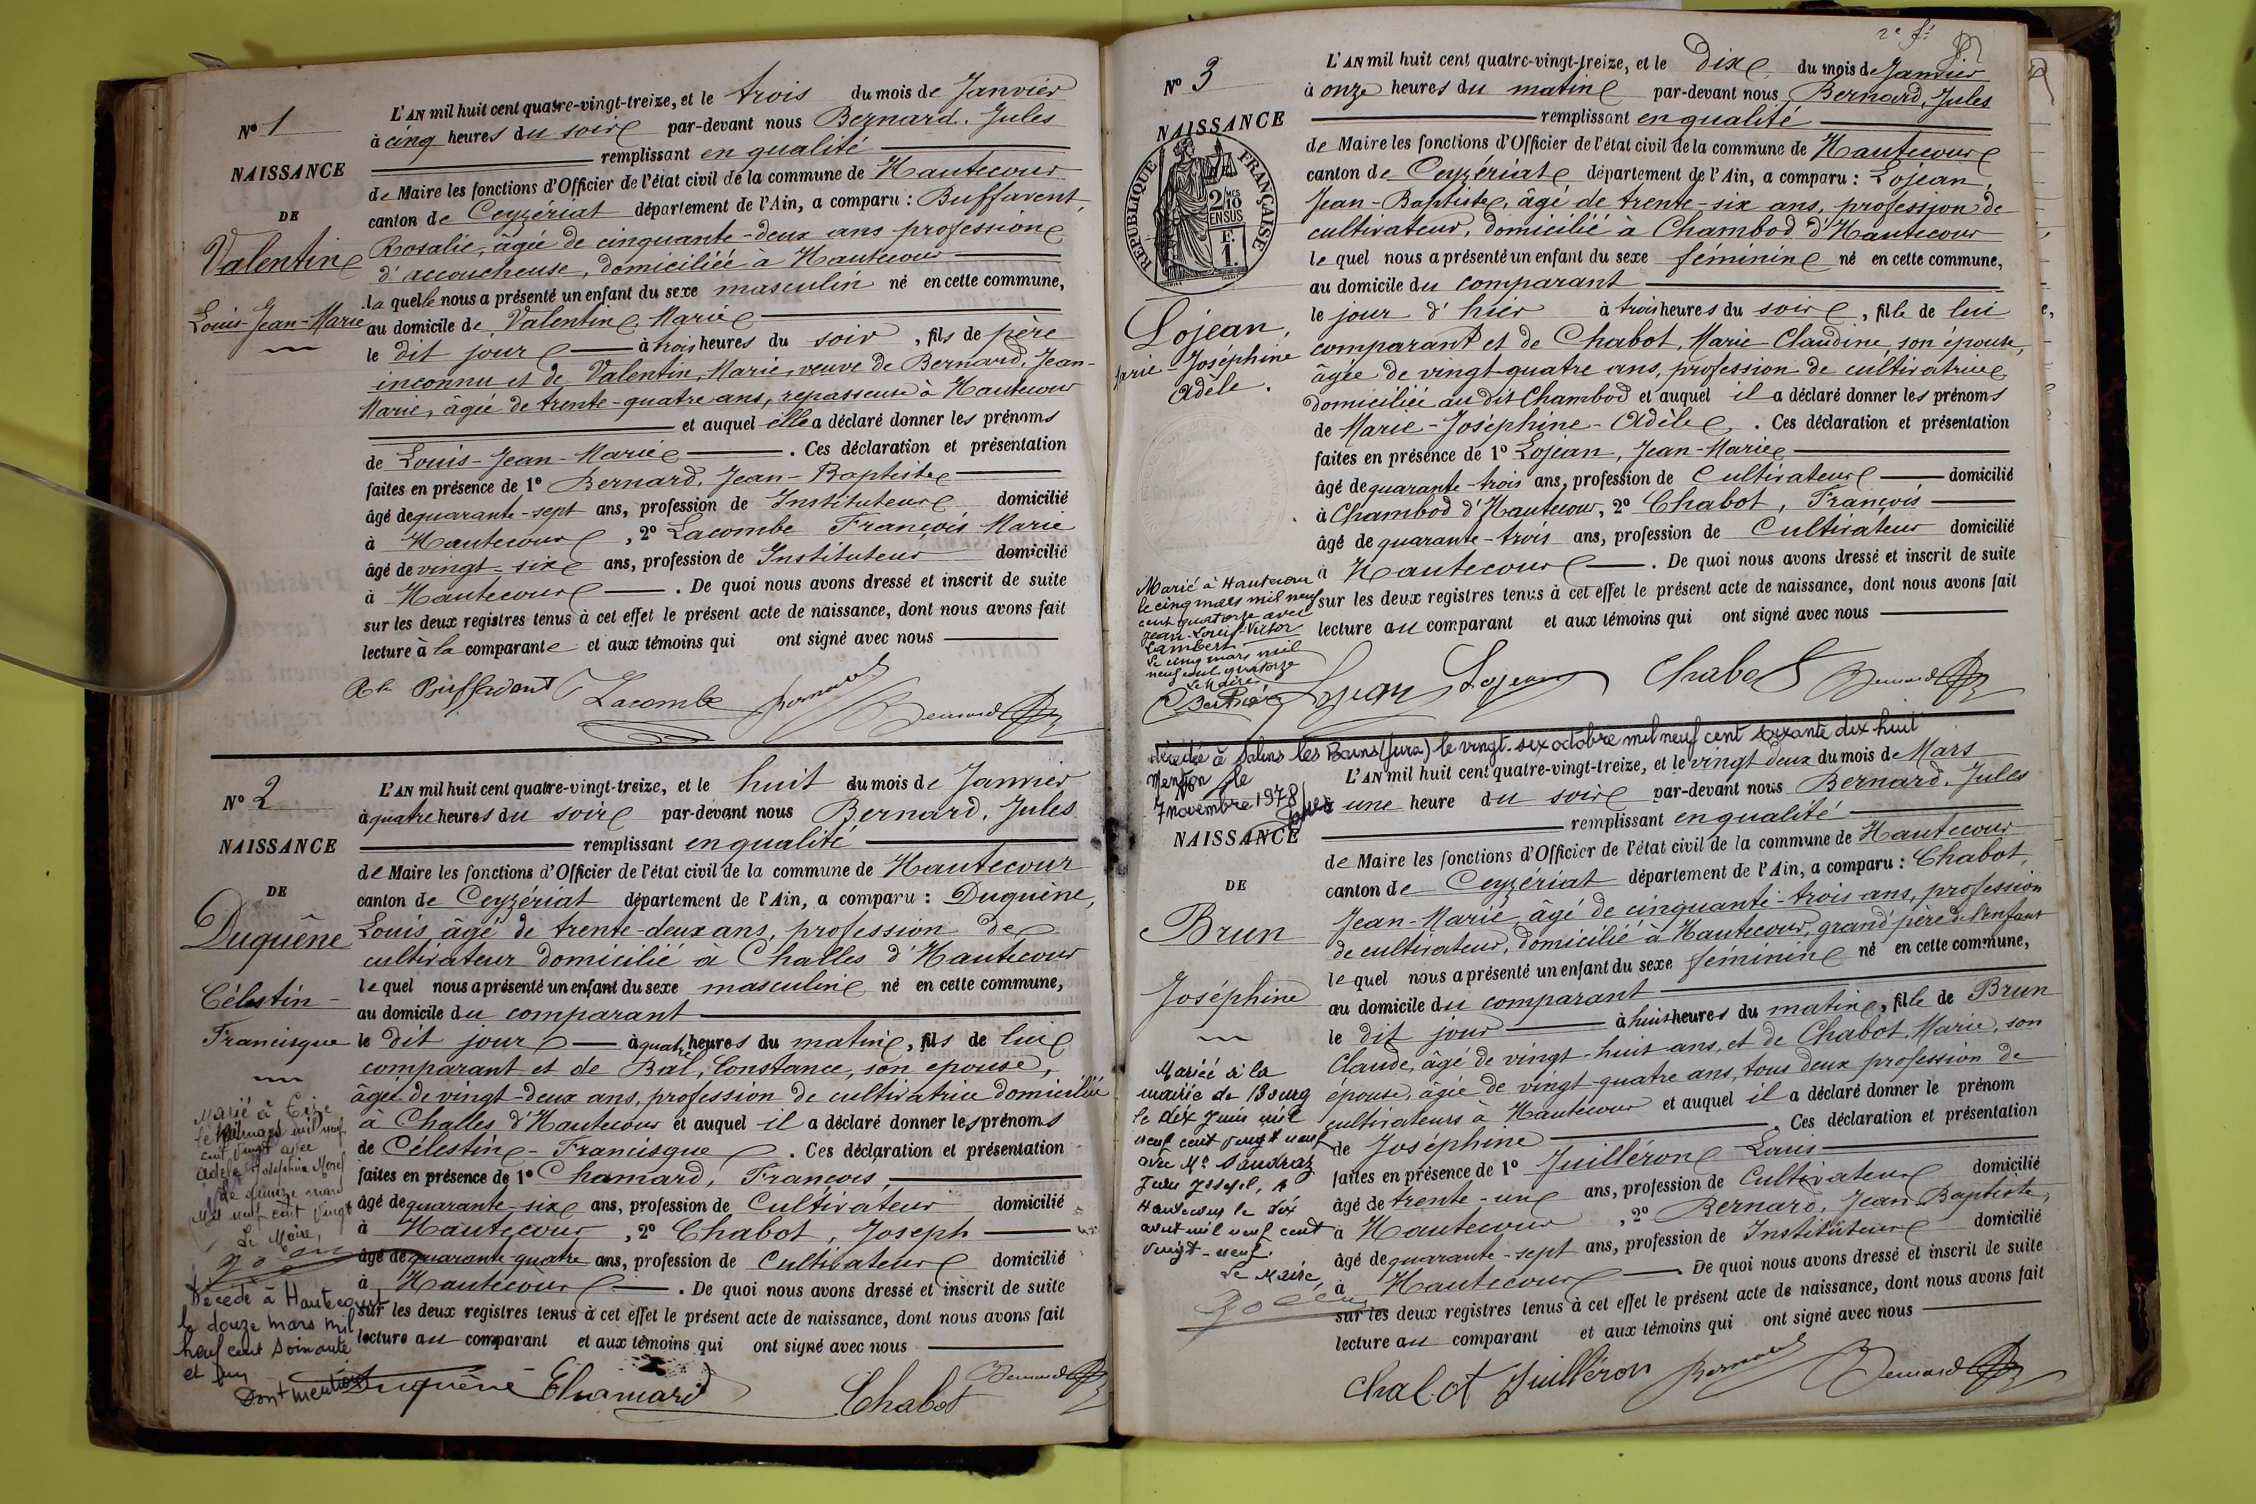 N° 1
NAISSANCE
DE
Valentin
Louis-Jean-Marie
L'AN mil huit cent quatre-vingt-treize, et le trois du mois de Janvier
à cinq heures du soir par-devant nous Bernard, Jules
remplissant en qualité
de Maire les fonctions d'Officier de l'état civil de la commune de Hautecour
canton de Ceyzériat département de l'Ain, a comparu : Buffavent,
Rosalie, âgée de cinquante-deux ans profession
d'accoucheuse, domiciliée à Hautecour
la quelle nous a présenté un enfant du sexe masculin né en cette commune,
au domicile de Valentin, Marie
le dit jour à trois heures du soir, fils de père
inconnu et de Valentin, Marie, veuve de Bernard, Jean-
Marie, âgée de trente-quatre ans, repasseuse à Hautecour
et auquel elle a déclaré donner les prénoms
de Louis-Jean-Marie. Ces déclaration et présentation
faites en présence de 1° Bernard, Jean-Baptiste
âgé de quarante-sept ans, profession de Instituteur domicilié
à Hautecour, 2° Lacombe François Marie
âgé de vingt-six ans, profession de Instituteur domicilié
à Hautecour. De quoi nous avons dressé et inscrit de suite
sur les deux registres tenus à cet effet le présent acte de naissance, dont nous avons fait
lecture à la comparante et aux témoins qui ont signé avec nous
Buffavant Lacombe Bernard Bernard
N° 2
NAISSANCE
DE
Duquêne
Célestin-
Francisque
L'AN mil huit cent quatre-vingt-treize, et le huit du mois de Janvier
à quatre heures du soir par-devant nous Bernard, Jules
remplissant en qualité
de Maire les fonctions d'Officier de l'état civil de la commune de Hautecour
canton de Ceyzériat département de l'Ain, a comparu : Duquêne,
Louis âgé de trente-deux ans, profession de
cultivateur domicilié à Challes d'Hautecour
le quel nous a présenté un enfant du sexe masculin né en cette commune,
au domicile du comparant
le dit jour à quatre heures du matin, fils de lui
comparant et de Bal, Constance, son épouse,
âgée de vingt-deux ans, profession de cultivatrice domiciliée
à Challes d'Hautecour et auquel il a déclaré donner les prénoms
de Célestin-Francisque. Ces déclaration et présentation
faites en présence de 1° Chamard, François
âgé de quarante-six ans, profession de Cultivateur domicilié
à Hautecour, 2° Chabot, Joseph
âgé de quarante-quatre ans, profession de Cultivateur domicilié
à Hautecour. De quoi nous avons dressé et inscrit de suite
sur les deux registres tenus à cet effet le présent acte de naissance, dont nous avons fait
lecture au comparant et aux témoins qui ont signé avec nous
Duquêne Chamard Chabot Bernard
Marié à
le mars mil neuf
cent vingt avec
Adèle Joséphine Morel
le quinze mars
Mil neuf cent vingt
Le Maire,
Décédé à Hautecour
le douze mars mil
neuf cent soixante
et un
Dont mention
2e ft
N° 3
NAISSANCE
RÉPUBLIQUE FRANÇAISE
2/10 EN SUS
1 F.
Lojean,
Marie-Joséphine
Adèle.
L'AN mil huit cent quatre-vingt-treize, et le dix du mois de Janvier
à onze heures du matin par-devant nous Bernard, Jules
remplissant en qualité
de Maire les fonctions d'Officier de l'état civil de la commune de Hautecour
canton de Ceyzériat, département de l'Ain, a comparu : Lojean,
Jean-Baptiste, âgé de trente-six ans, profession de
cultivateur, domicilié à Chambod d'Hautecour
le quel nous a présenté un enfant du sexe féminin né en cette commune,
au domicile du comparant
le jour d'hier à trois heures du soir, fille de lui
comparant et de Chabot, Marie Claudine, son épouse,
âgée de vingt-quatre ans, profession de cultivatrice
domiciliée au dit Chambod et auquel il a déclaré donner les prénoms
de Marie-Joséphine-Adèle. Ces déclaration et présentation
faites en présence de 1° Lojean, Jean-Marie
âgé de quarante-trois ans, profession de Cultivateur domicilié
à Chambod d'Hautecour, 2° Chabot, François
âgé de quarante-trois ans, profession de Cultivateur domicilié
à Hautecour. De quoi nous avons dressé et inscrit de suite
sur les deux registres tenus à cet effet le présent acte de naissance, dont nous avons fait
lecture au comparant et aux témoins qui ont signé avec nous
Lojean Lojean Chabot Bernard
Marié à Hautecour
le cinq mars mil neuf
cent quatorze avec
Jean-Louis-Victor
Lambert.
Le cinq mars mil
neuf cent quatorze
Le Maire
décédée à Salins les Bains (Jura) le vingt-six octobre mil neuf cent soixante dix huit
Mention le
7 novembre 1978
NAISSANCE
DE
Brun
Joséphine
L'AN mil huit cent quatre-vingt-treize, et le vingt deux du mois de Mars
à une heure du soir par-devant nous Bernard, Jules
remplissant en qualité
de Maire les fonctions d'Officier de l'état civil de la commune de Hautecour
canton de Ceyzériat département de l'Ain, a comparu : Chabot,
Jean-Marie, âgé de cinquante-trois ans, profession
de cultivateur, domicilié à Hautecour, grand'père de l'enfant
le quel nous a présenté un enfant du sexe féminin né en cette commune,
au domicile du comparant
le dit jour à huit heures du matin, fille de Brun
Claude, âgé de vingt-huit ans, et de Chabot, Marie, son
épouse, âgée de vingt-quatre ans, tous deux profession de
cultivateurs à Hautecour et auquel il a déclaré donner le prénom
de Joséphine. Ces déclaration et présentation
faites en présence de 1° Juilléron Louis
âgé de trente-un ans, profession de Cultivateur domicilié
à Hautecour, 2° Bernard, Jean-Baptiste,
âgé de quarante-sept ans, profession de Instituteur domicilié
à Hautecour. De quoi nous avons dressé et inscrit de suite
sur les deux registres tenus à cet effet le présent acte de naissance, dont nous avons fait
lecture au comparant et aux témoins qui ont signé avec nous
Chabot Juilléron Bernard Bernard
Mariée à la
mairie de Bourg
le dix Juin mil
neuf cent vingt neuf
avec Mr Saudraz
Jules Joseph, A
Hautecour le dix
aout mil neuf cent
vingt-neuf.
Le Maire,